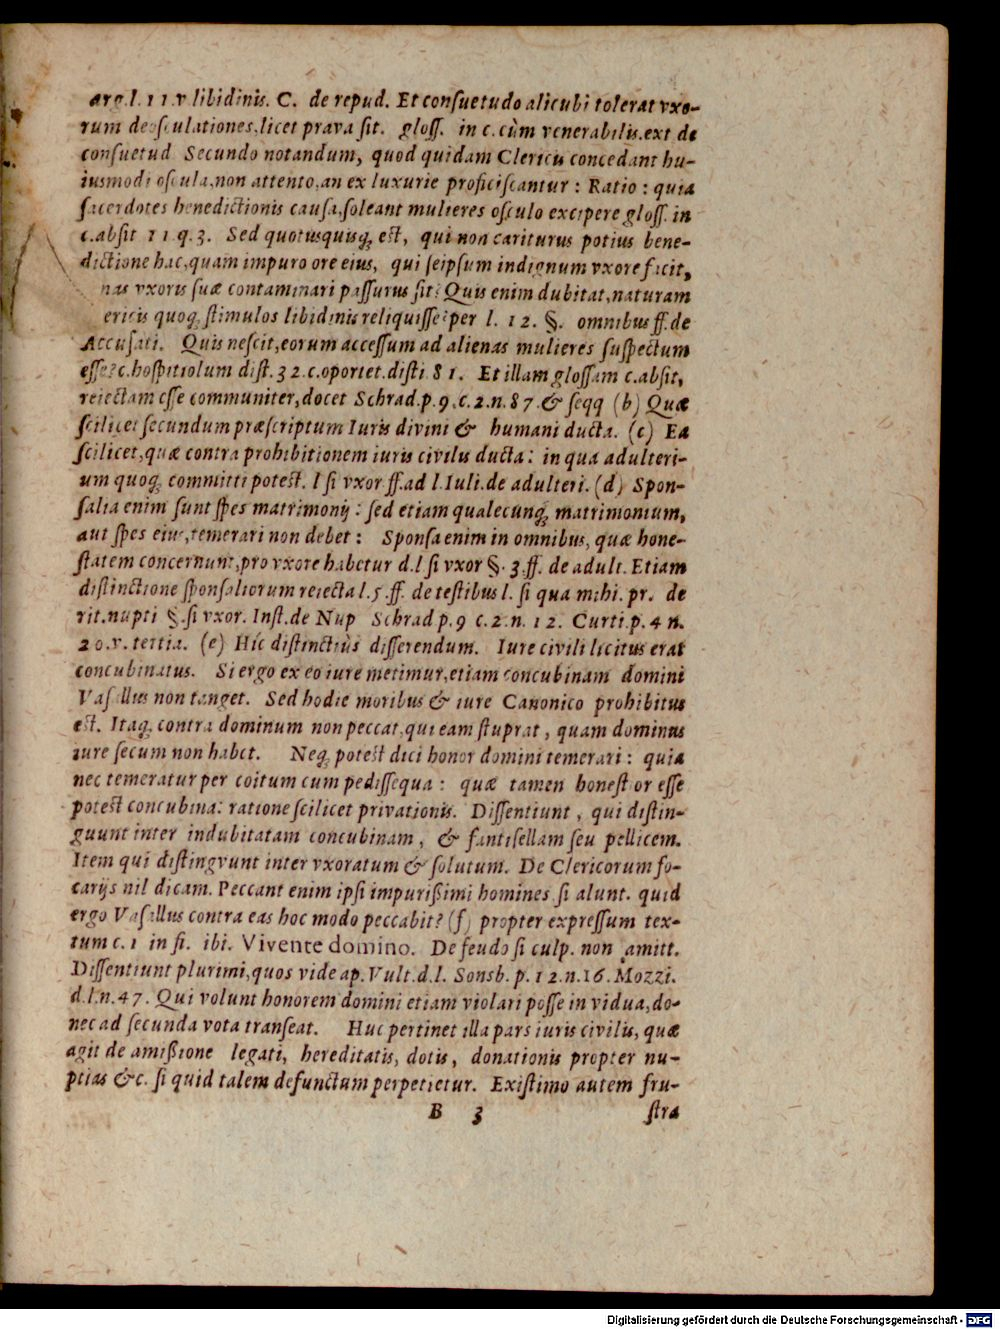 arg.l.11.v libidinis. C. de repud. Et consuetudo alicubi tolerat vxo-
rum deosculationes, licet prava sit. gloss. in c. cùm venerabilis. ext de
consuetud Secundo notandum, quod quidam Clericis concedant hu-
iusmodi oscula, non attento, an ex luxurie proficiscantur: Ratio: quia
sacerdotes benedictionis causa, soleant mulieres osculo excipere gloss. in
c. absit 11 q. 3. Sed quotusquisq; est, qui non cariturus potius bene-
dictione hac, quam impuro ore eius, qui seipsum indignum vxore facit,
nas vxoris suæ contaminari passurus sit? Quis enim dubitat, naturam
ericis quoq; stimulos libidinis reliquisse? per l. 12. §. omnibus ff. de
Accusati. Quis nescit, eorum accessum ad alienas mulieres suspectum
esse? c. hospitiolum dist. 32. c. oportet. disti 81. Et illam glossam c. absit,
reiectam esse communiter, docet Schrad. p. 9. c. 2. n. 87. & seqq (b) Quæ
scilicet secundum præscriptum Iuris divini & humani ducta. (c) Ea
scilicet, quæ contra prohibitionem iuris civilis ducta: in qua adulteri-
um quoq; committi potest. l si vxor ff. ad l. Iuli. de adulteri. (d) Spon-
salia enim sunt spes matrimonij: sed etiam qualecunq; matrimonium,
aut spes eius, temerari non debet: Sponsa enim in omnibus, quæ hone-
statem concernunt, pro vxore habetur d. l si vxor §. 3. ff. de adult. Etiam
distinctione sponsaliorum reiecta l. 5. ff. de testibus l. si qua mihi. pr. de
rit. nupti §. si vxor. Inst. de Nup Schrad p. 9 c. 2. n. 12. Curti. p. 4 n.
20. v. tertia. (e) Hîc distinctiùs differendum. Iure civili licitus erat
concubinatus. Si ergo ex eo iure metimur, etiam concubinam domini
Vasallus non tanget. Sed hodie moribus & iure Canonico prohibitus
est. Itaq; contra dominum non peccat, qui eam stuprat, quam dominus
iure secum non habet. Neq; potest dici honor domini temerari: quia
nec temeratur per coitum cum pedissequa: quæ tamen honestior esse
potest concubina: ratione scilicet privationis. Dissentiunt, qui distin-
guunt inter indubitatam concubinam, & fantisellam seu pellicem.
Item qui distingvunt inter vxoratum & solutum. De Clericorum fo-
carijs nil dicam. Peccant enim ipsi impurißimi homines si alunt. quid
ergo Vasallus contra eas hoc modo peccabit? (f) propter expressum tex-
tum c. 1 in fi. ibi. Vivente domino. De feudo si culp. non amitt.
Dissentiunt plurimi, quos vide ap. Vult. d. l. Sonsb. p. 12. n. 16. Mozzi.
d. l. n. 47. Qui volunt honorem domini etiam violari posse in vidua, do-
nec ad secunda vota transeat. Huc pertinet illa pars iuris civilis, quæ
agit de amißione legati, hereditatis, dotis, donationis propter nu-
ptias &c. si quid talem defunctum perpetietur. Existimo autem fru-
B 3 stra
Digitalisierung gefördert durch die Deutsche Forschungsgemeinschaft - DFG